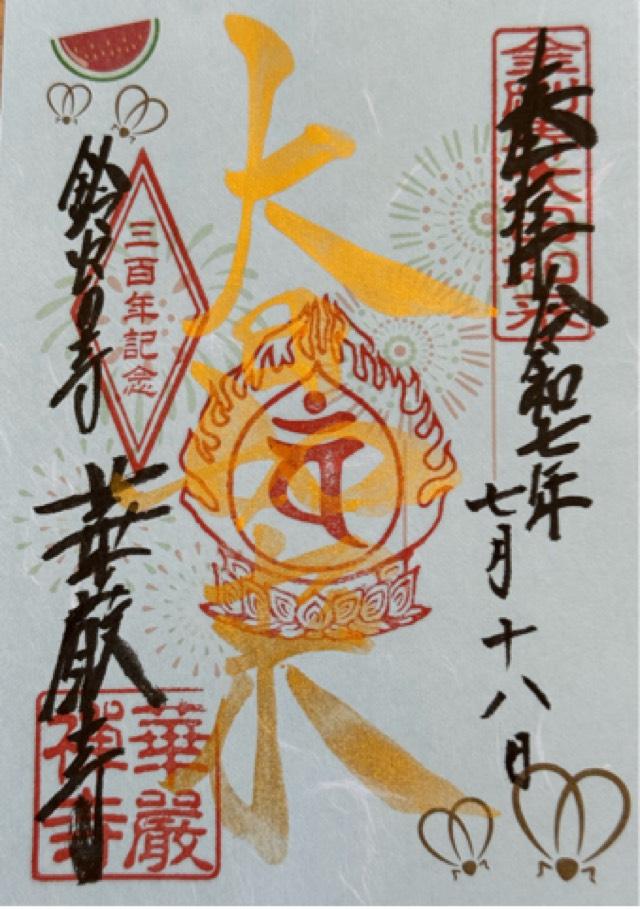 奉拝 令和七年
七月十八日
金剛界大日如来
大日如来
三百年記念
鈴虫寺
華厳寺
華嚴
禪寺